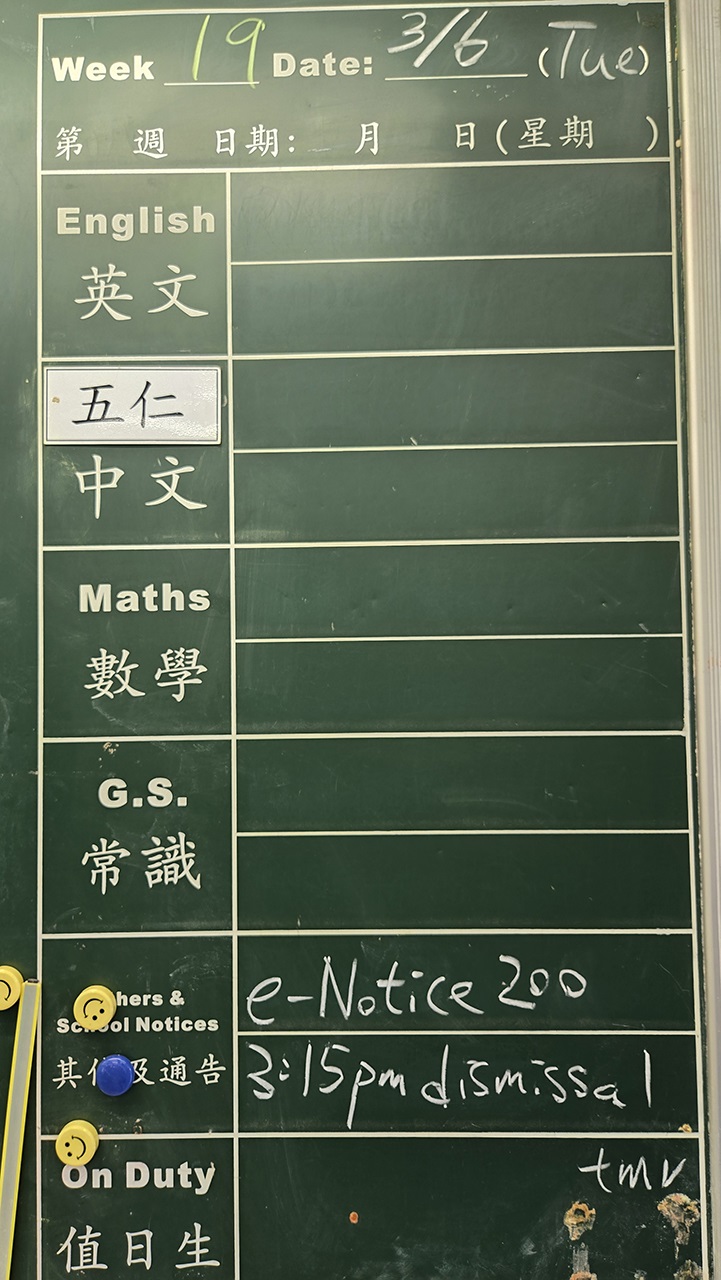 Week 19 Date: 3/6 (Tue)
第 週 日期: 月 日(星期 )
English
英文
五仁
中文
Maths
數學
G.S.
常識
hers &
e-Notice 200
Sc ol Notices
其 及通告
3:15pm dismissal
On Duty
tmr
值日生